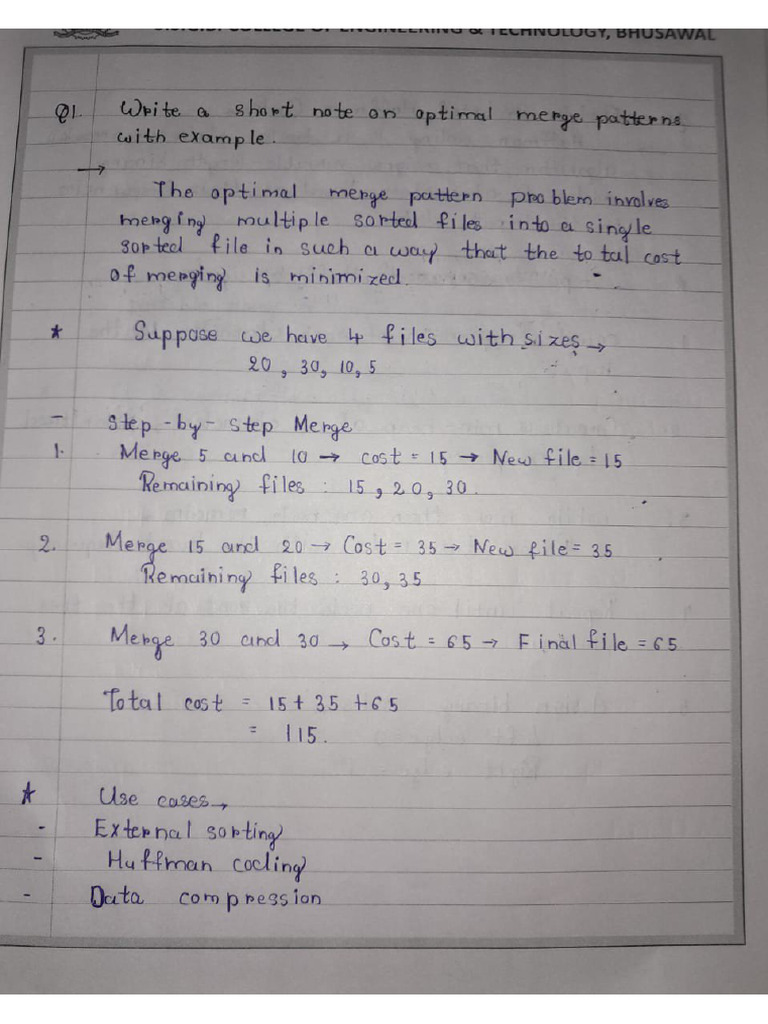 COLLEGE OF ENGINEERING & TECHNOLOGY, BHUSAWAL
Q1. Write a short note on optimal merge patterns
with example.
→
The optimal merge pattern problem involves
merging multiple sorted files into a single
sorted file in such a way that the total cost
of merging is minimized.
* Suppose we have 4 files with sizes →
20, 30, 10, 5
- Step-by-step Merge
1. Merge 5 and 10 → cost = 15 → New file = 15
Remaining files : 15, 20, 30.
2. Merge 15 and 20 → Cost = 35 → New file = 35
Remaining files : 30, 35
3. Merge 30 and 30 → Cost = 65 → Final file = 65
Total cost = 15 + 35 + 65
= 115.
* Use cases →
- External sorting
- Huffman coding
- Data compression